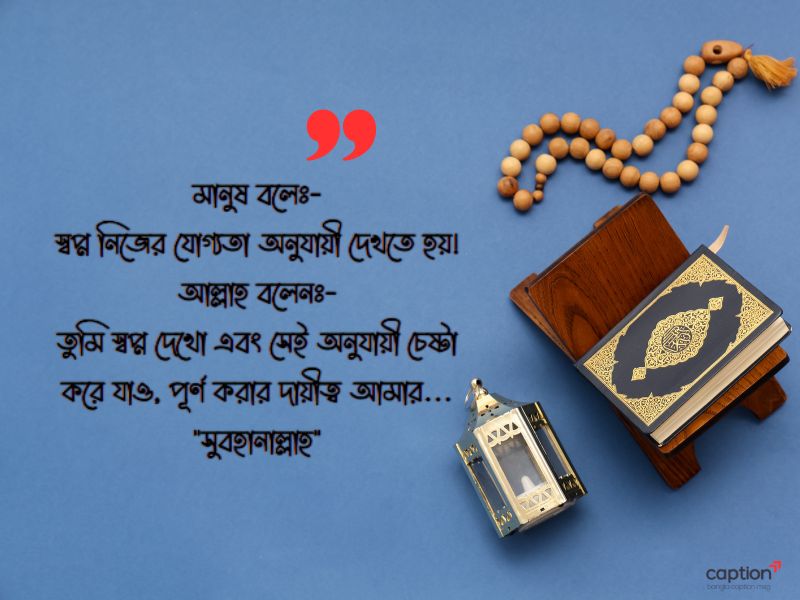 মানুষ বলেঃ-
স্বপ্ন নিজের যোগ্যতা অনুযায়ী দেখতে হয়।
আল্লাহ বলেনঃ-
তুমি স্বপ্ন দেখো এবং সেই অনুযায়ী চেষ্টা
করে যাও, পূর্ণ করার দায়ীত্ব আমার...
"সুবহানাল্লাহ"
caption
bangla caption msg